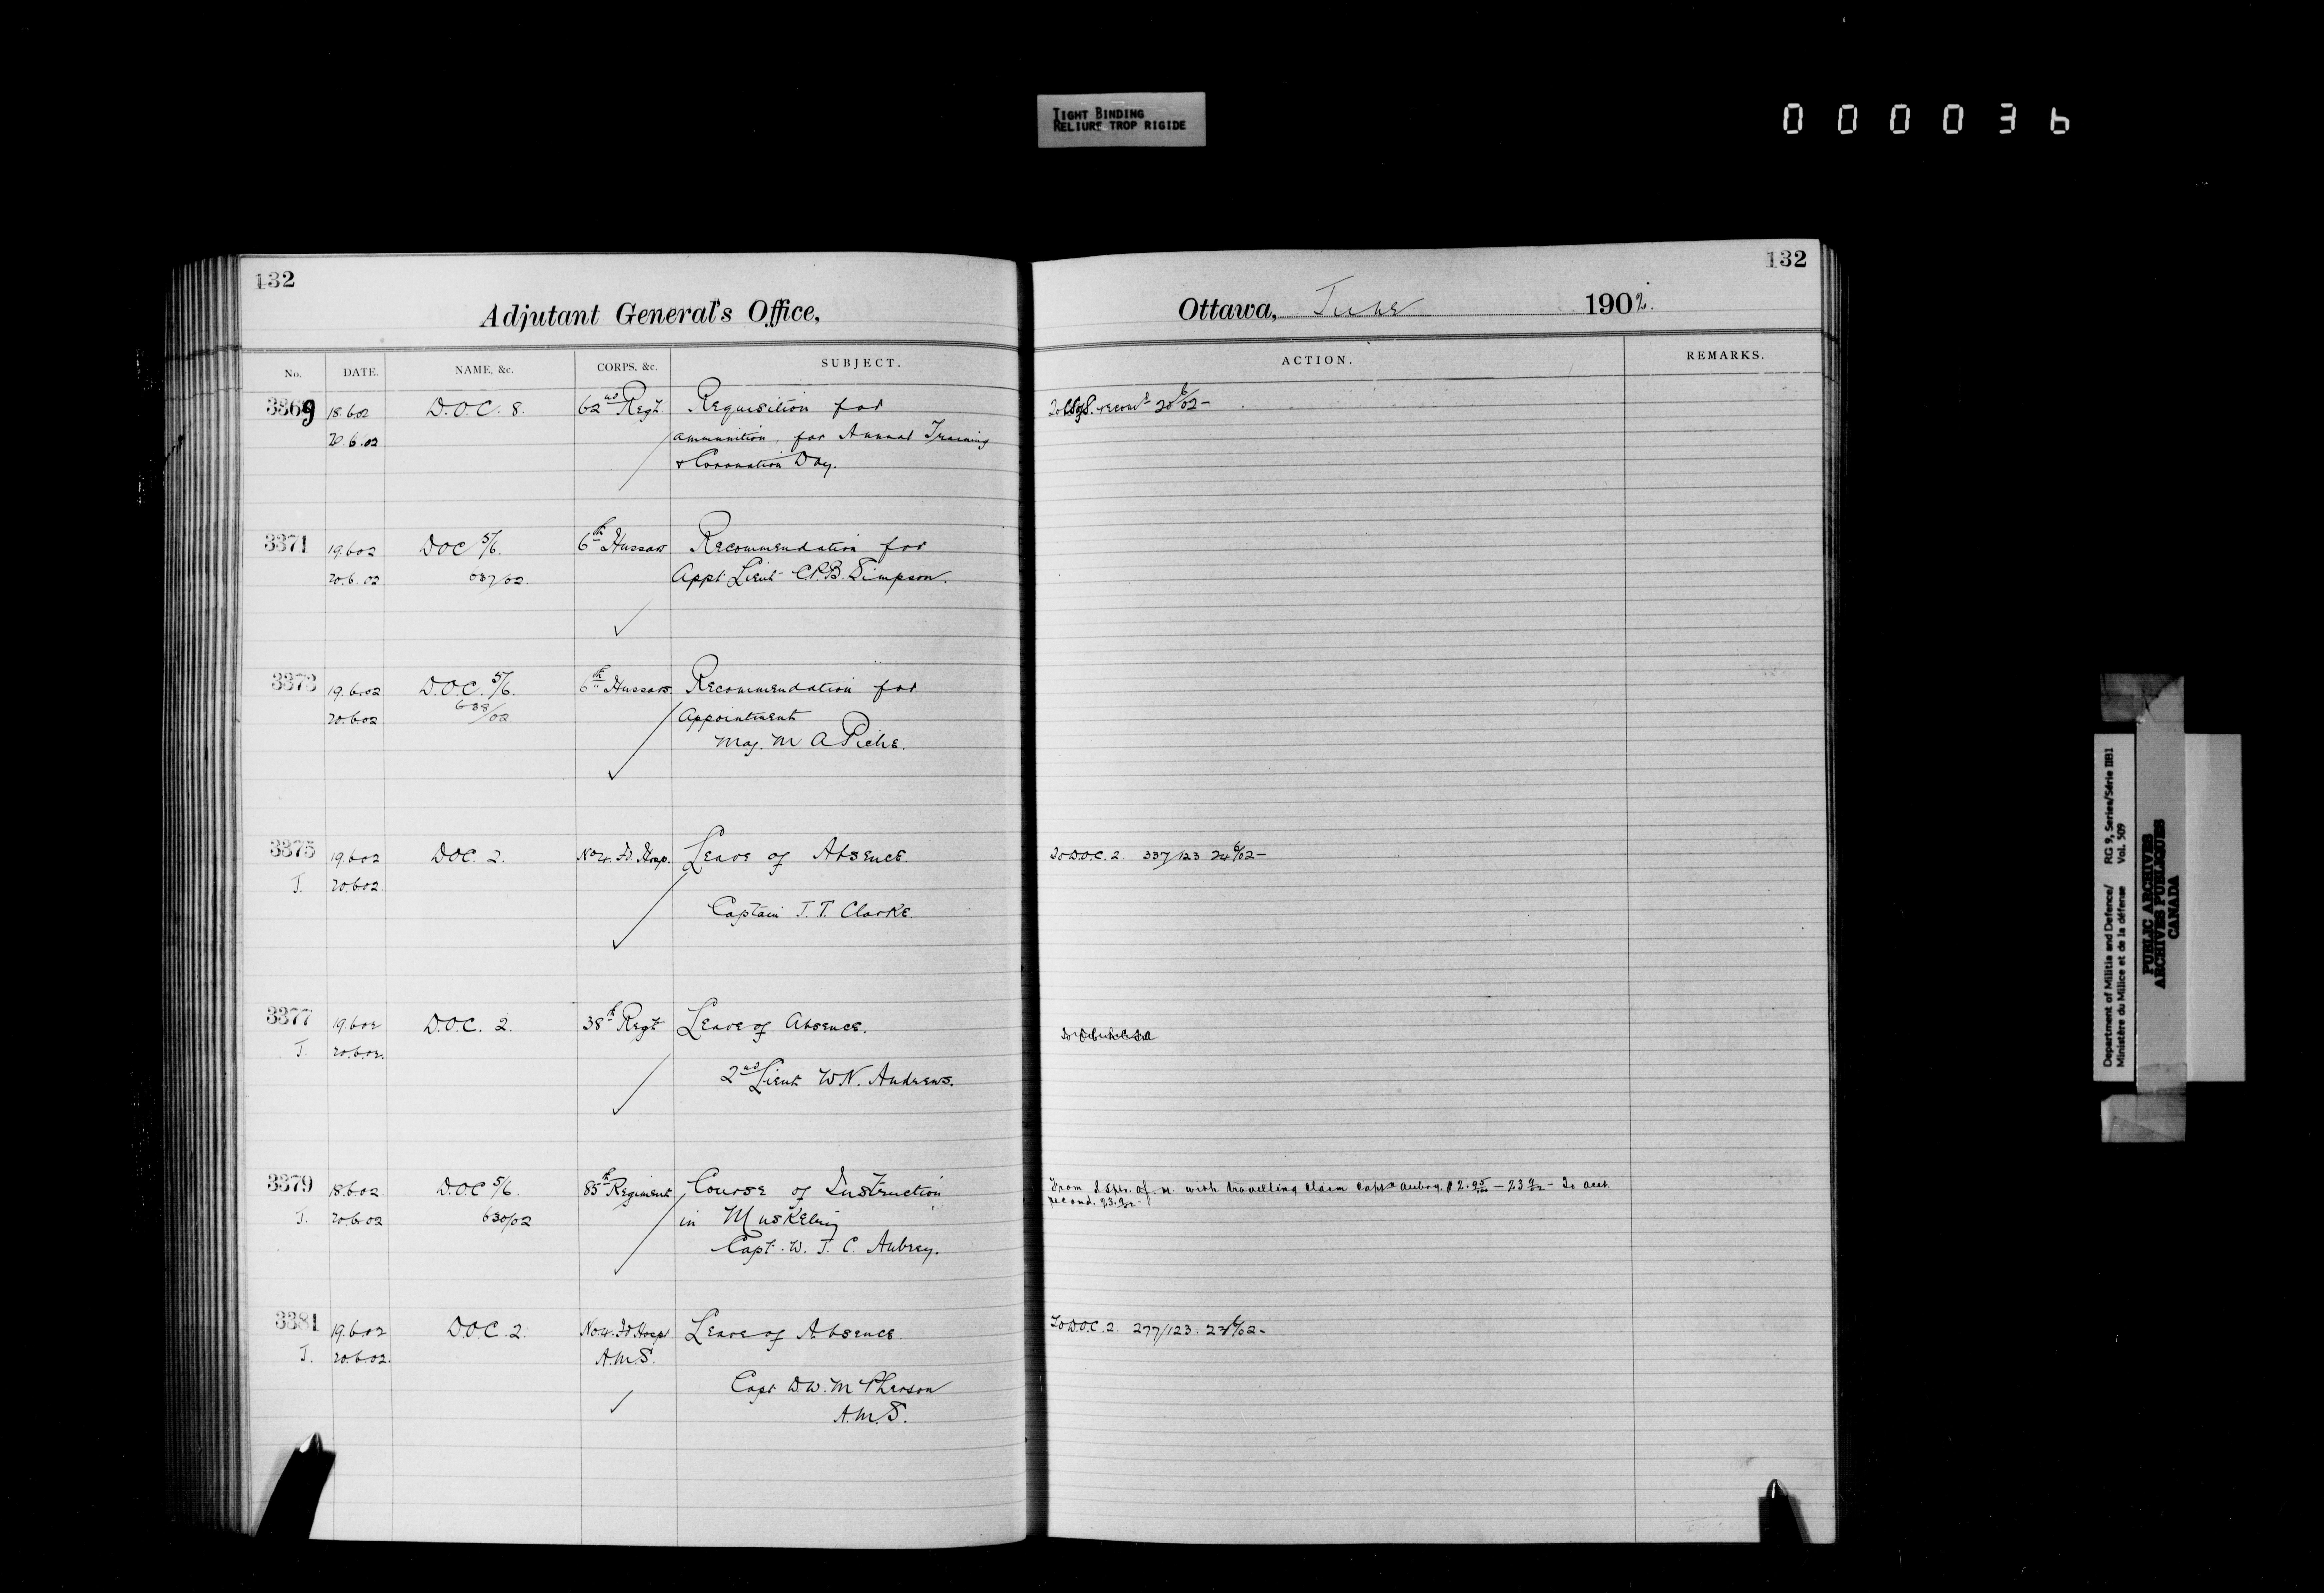 TIGHT BINDING
RELIURE TROP RIGIDE
000036
132
Adjutant General's Office,
No. DATE. NAME, &c. CORPS, &c. SUBJECT.
3369 18.6.02 D.O.C. 8. 62nd Regt. Requisition for
20.6.02 ammunition, for Annual Training
& Coronation Day.
3371 19.6.02 DOC 5/6. 6th Hussars Recommendation for
20.6.02 637/02. Appt. Lieut C.P.B. Simpson.
3373 19.6.02 D.O.C. 5/6. 6th Hussars. Recommendation for
20.6.02 638/02 Appointment
Maj. M A Piche.
3375 19.6.02 DOC. 2. No 4. Fd Hosp. Leave of Absence.
J. 20.6.02
Captain J. T. Clarke.
3377 19.6.02 D.O.C. 2. 38th Regt Leave of Absence.
J. 20.6.02.
2nd Lieut W N. Andrews.
3379 18.6.02 D.O.C 5/6. 85th Regiment Course of Instruction
J. 20.6.02 630/02 in Musketry
Capt. W. J. C. Aubrey.
3381 19.6.02 D.O.C. 2. No 4. Fd Hospl Leave of Absence.
J. 20.6.02. A.M.S.
Capt D. W. McPherson
A.M.S.
132
Ottawa, June 1902.
ACTION. REMARKS.
20 6/02-
To D.O.C. 2. 337/123 24 6/02-
From with travelling claim Capt Aubry. $2.95/100 - 23 9/02 - To acct.
recomd. 23.9/02-
To D.O.C. 2. 277/123. 23 6/02-
Department of Militia and Defence/ RG 9, Series/Série IIB1
Ministère du Milice et de la défense Vol. 509
PUBLIC ARCHIVES
ARCHIVES PUBLIQUES
CANADA